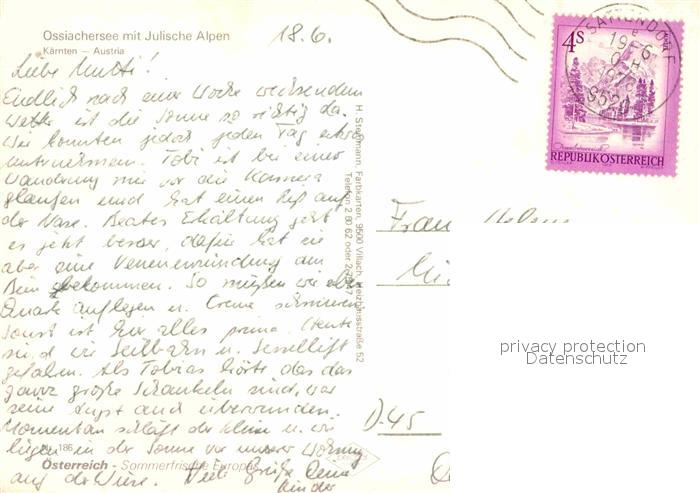 Ossiachersee mit Julische Alpen
Kärnten — Austria
18.6.
Liebe Mutti!
Endlich nach einer Woche wechselndem
Wetter ist die Sonne so richtig da.
Wir konnten jedoch jeden Tag etwas
unternehmen. Tobi ist bei einer
Wanderung mir vor die Kamera
gelaufen und hat einen Riß auf
der Nase. Beates Erkältung geht
es jetzt besser, dafür hat sie
aber eine Venenentzündung am
Bein bekommen. So müßen wir
Quark auflegen u. Creme schmieren
sonst ist hier alles prima. Heute
sind wir Seilbahn u. Sessellift
gefahren. Als Tobias hörte das das
ganz große Schaukeln sind, war
seine Angst auch überwunden.
Momentan schläft der kleine u. wir
liegen in der Sonne vor unserer Wohnung
auf der Wiese. Viele Grüße Deine
Kinder
186
Österreich - Sommerfrische Europas
H. Steßlmann, Farbkarten, 9500 Villach, Heizhausstraße 52
Telefon 2 80 62 oder
4S
REPUBLIK ÖSTERREICH
SATTENDORF
9520
Frau
D-45
privacy protection
Datenschutz